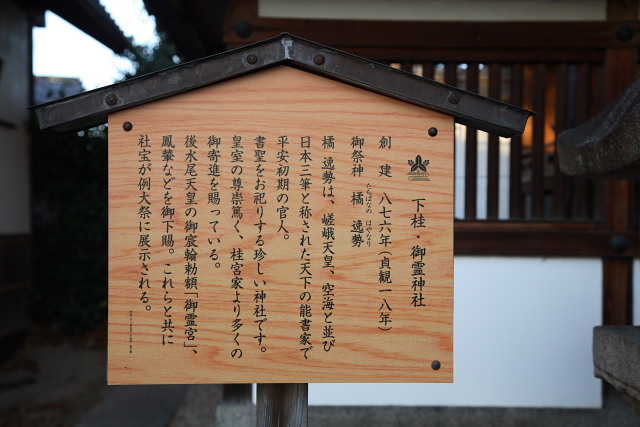 下桂・御霊神社
創建 八七六年(貞観一八年)
御祭神 橘 逸勢
たちばなの はやなり
橘 逸勢は、嵯峨天皇、空海と並び
日本三筆と称された天下の能書家で
平安初期の官人。
書聖をお祀りする珍しい神社です。
皇室の尊崇篤く、桂宮家より多くの
御寄進を賜っている。
後水尾天皇の御宸輪勅額「御霊宮」、
鳳輦などを御下賜。これらと共に
社宝が例大祭に展示される。